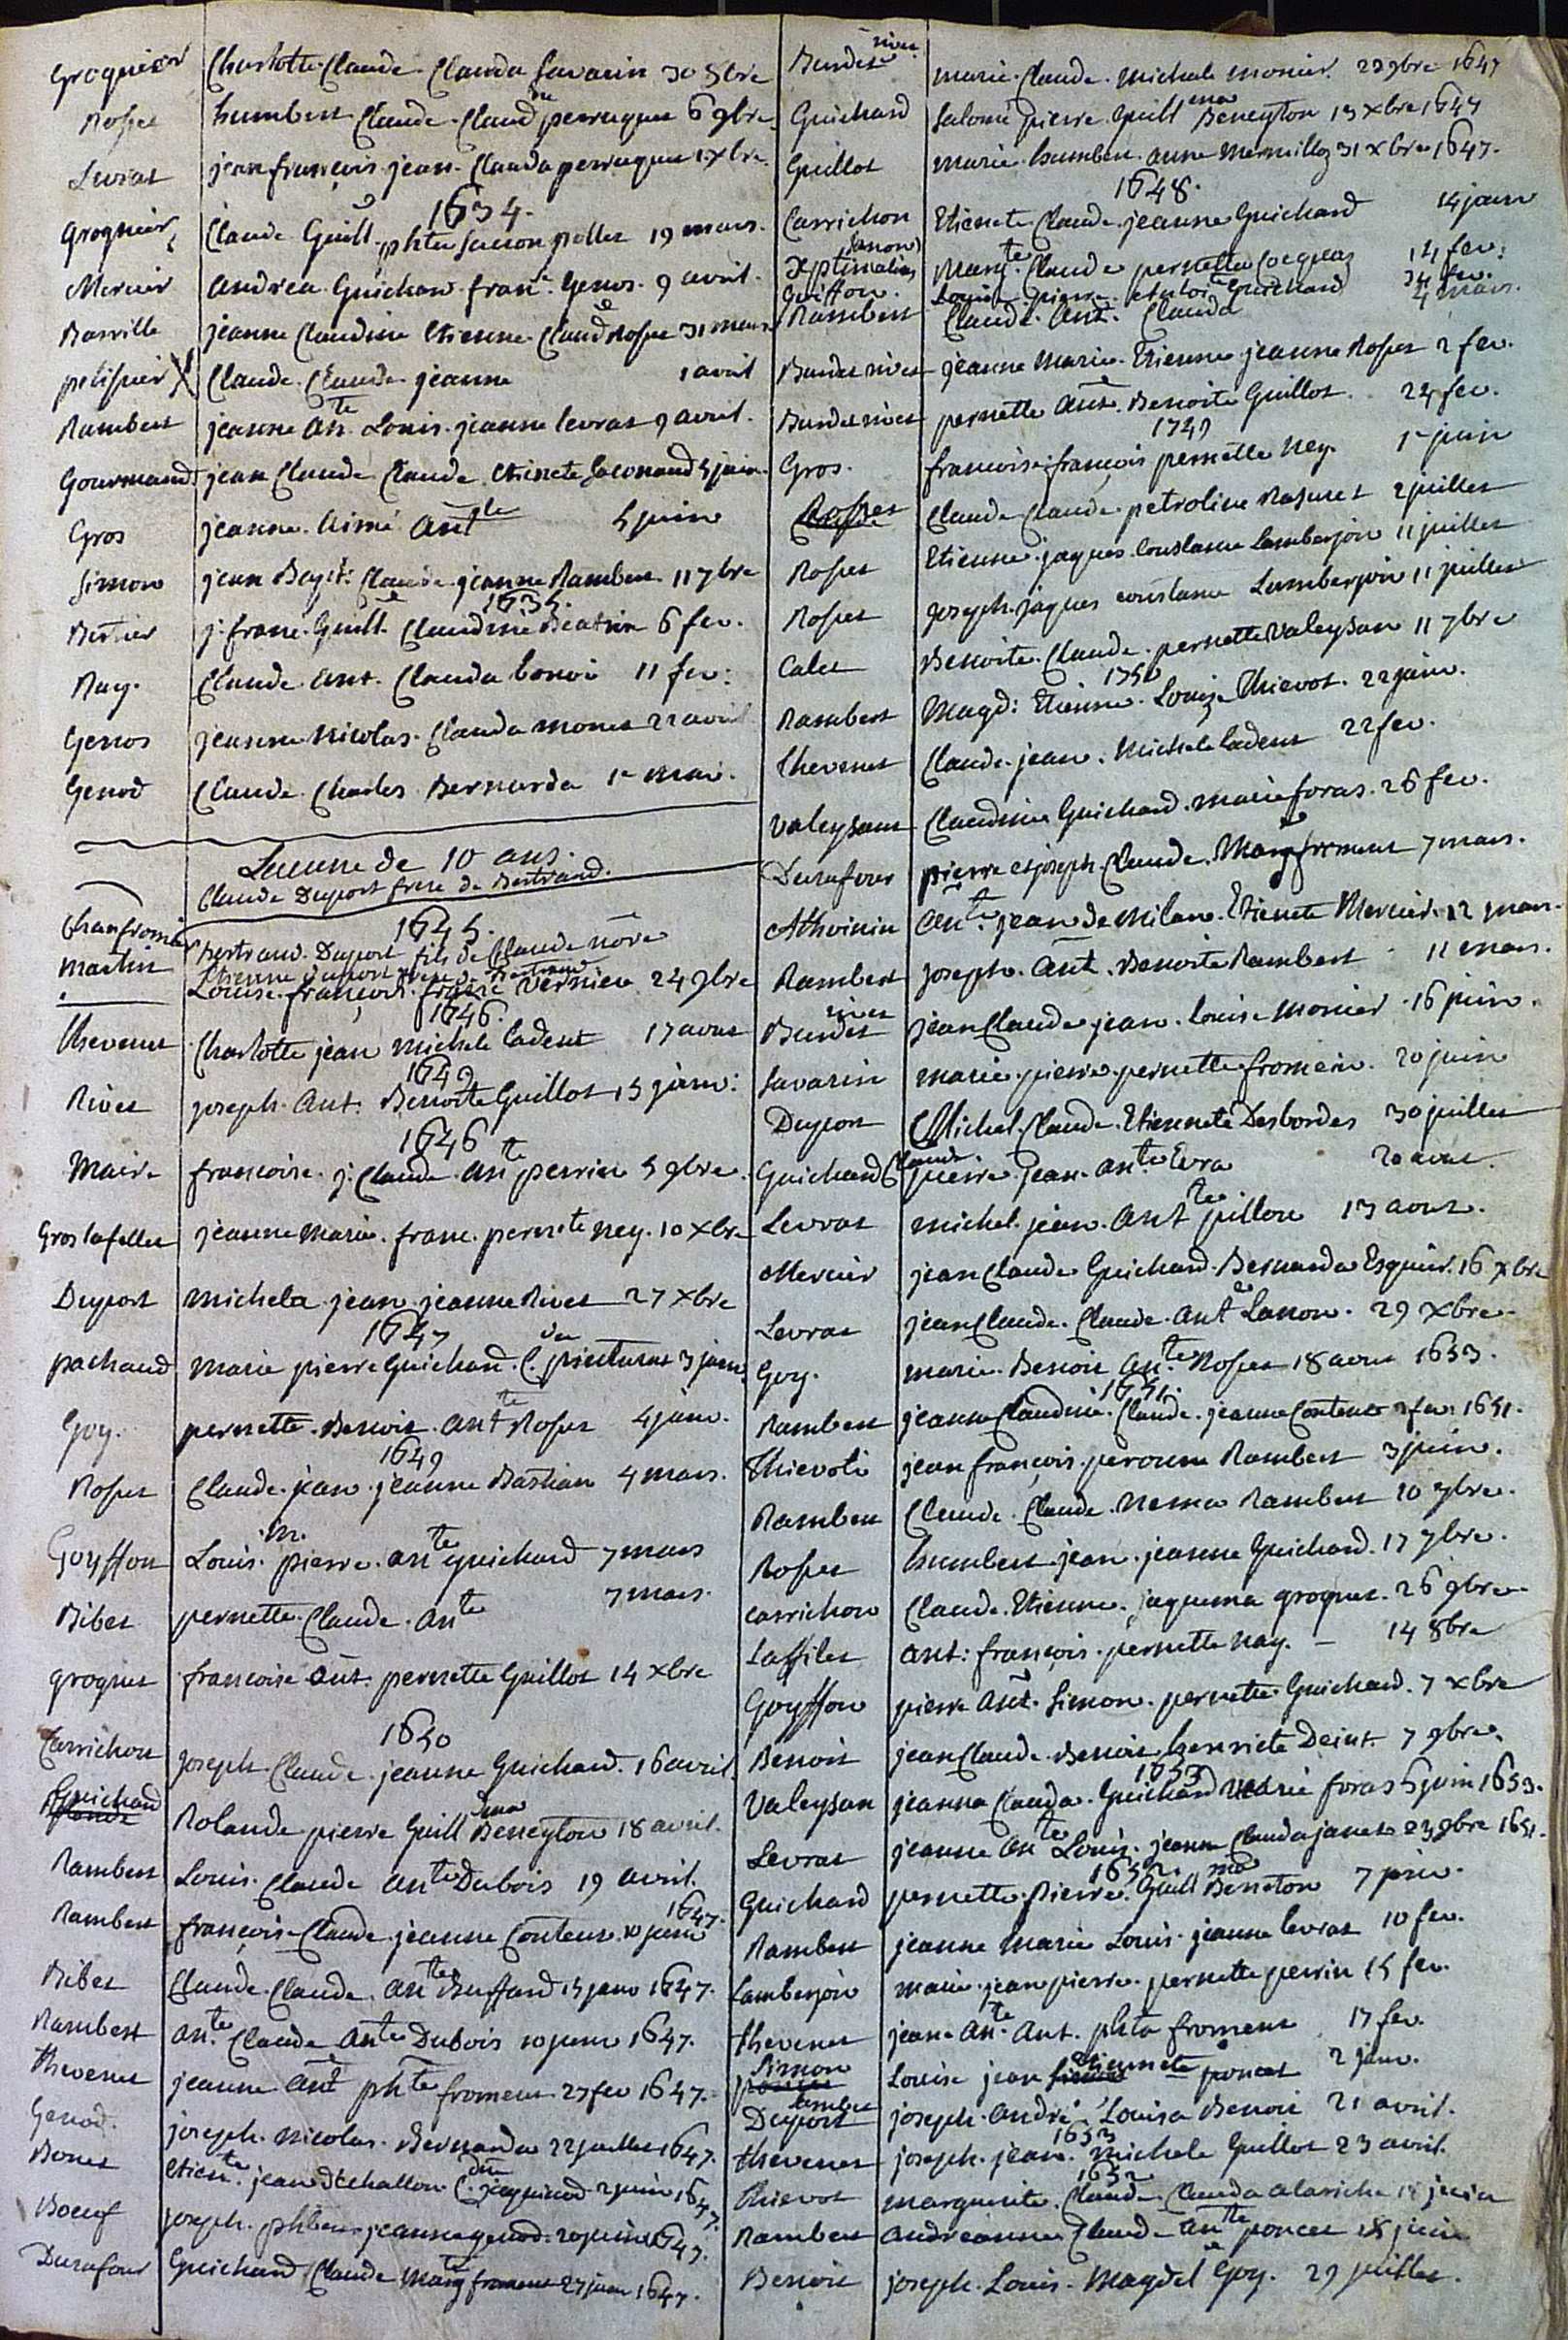 Groguier Charlotte. Claude. Clauda Savarin 30 8bre
Rosset humbert. Claude. Claud perruquet 6 9bre.
Levrat jean françois. jean. Clauda perruquet 1 xbre.
1634.
Groguier Claude Guill phte pellet 19 mars.
Mercier andrea. Guichar. franc. Genos. 9 avril.
Barville jeanne Claudine Etienne. Claud Rosset 31 mars
pelissier X Claude. Claude. jeanne 1 avril
Rambert jeanne Ante. Louis. jeanne levrat 9 avril.
Gourmand jean Claude Claude. Etienete 5 juin.
Gros jeanne. Aimé Antte 5 juin
Simon jean Bapt: Claude. jeanne Rambert 11 7bre
1635.
j. franc. Guill. Claudine Beatrix 6 fev.
Ray. Claude. Ant. Clauda bonoi 11 fev:
Genos jeanne. Nicolas. Clauda monet 22 avril
Genod Claude. Charles. Bernarda 1r mai.
Lacune de 10 ans.
Claude Duport frere de Bertrand.
1645.
Chanfromier Bertrand. Duport fils de Claude nore
Martin Etienne Duport frere de Bertrand
Louise. françois. Vernier 24 9bre
1646.
Thevenet Charlotte jean michele Cadent 17 aoust
1649
Rivet joseph. Ant. Benoite Guillot 15 janv:
1646
Maire francoise. j. Claude. Ante perrin 5 9bre.
Gros lafillet jeanne marie. franc. pernete Ney. 10 xbre
Duport michela. jean. jeanne Rivet 27 xbre
1647
pachaud marie pierre Guichard. C. da 3 janv
Goy. pernette. Benoit. Antte Rosset 4 janv.
1649
Rosset Claude. jean. jeanne Bastian 4 mars.
Goyffon Louis. m. pierre. ante guichard 7 mars
Ribet pernette. Claude. Ante 7 mars.
groguet francoise Ant. pernette Guillot 14 xbre
1650
Carrichon joseph. Claude. jeanne Guichard. 16 avril.
Guichard Rolande pierre Guill ma Beneyton 18 avril.
Rambert Louis. Claude Ante Dubois 19 avril.
Rambert françois. Claude. jeanne Contens. 10 janv 1647.
Ribet Claude. Claude. Ante Buffard 15 janv 1647.
Rambert Ante. Claude Ante Dubois 10 janv 1647.
Thevenet jeanne Ant phte froment 27 fev 1647.
Genod. joseph. Nicolas. Bernarda 22 juillet 1647.
Bonet Etiente. jean d'Echallon. C. da jaquinod 2 juin 1647.
Boeuf joseph. jeanne genod. 20 juin 1647.
Durafour Guichard. Claude Marg froment 27 juin 1647.
Burdet rivet marie. Claude. michele monier. 22 9bre 1647
Guichard Salomé pierre Guill ma Beneyton 13 xbre 1647
Guillot marie. humbert. anne Mermilloz 31 xbre 1647.
1648.
Carrichon Etienete. Claude. jeanne Guichard 14 janv
Septimalieu Margte. Claude pernette 14 fev:
Goiffon. Louise. pierre. Antoite Guichard 24 fev.
Rambert Claude. Ant. Clauda 4 mars.
Burdet rivet jeanne Marie. Etienne jeanne Rosset 2 fev.
Burdet rivet pernette Ant. Benoite Guillot. 24 fev.
1749
Gros. francoise. françois pernette Ney. 1r juin
Rosset Claude Claude. petroline Rasuret 2 juillet
Rosset Etienne. jaques. Constance Lamberjon 11 juillet
Rosset joseph. jaques constance Lamberjon 11 juillet
Calet Benoite. Claude. pernette Valeysan 11 7bre
1750
Rambert Magd: Etienne. Louize Thievot. 22 janv.
Thevenet Claude. jean. Michele Cadent 22 fev.
Valeysan Claudine Guichard. marie foras. 26 fev.
Durafour pierre et joseph. Claude. Marg froment 7 mars.
Athoinin Ante. jean de Milan. Etienete Mercier. 12 mars.
Rambert joseph. Ant. Benoite Rambert 11 mars.
Burdet rivet jean Claude. jean. louise Monier. 16 juin.
Savarin marie. pierre. pernette froment. 20 juin
Duport Michel. Claude. Etienete Desbordes 30 juillet
Guichard Claude pierre jean. ante Evra 20 aout.
Levrat michel. jean. Antte pillon 13 aout.
Mercier jean Claude. Guichard. Bernarda Esquier. 16 xbre
Levrat jean Claude. Claude. Ante Lanon. 29 xbre.
Goy. marie. Benoit Ante Rosset 18 aout 1653.
1651.
Rambert jeanne Claudine. Claude. jeanne Contens 2 fev 1651.
Thievoli jean françois. peronne Rambert 3 juin.
Rambert Claude. Claude. Nema Rambert 10 7bre.
Rosset humbert. jean. jeanne Guichard. 17 7bre.
carrichon Claude. Etienne. jaquema groguet. 26 9bre.
Laffilet Ant: françois. pernette Nay. 14 8bre
Goyffon pierre Ant. Simon. pernette. Guichard. 7 xbre
Benoit jean Claude. Benoit. henriete Deint 7 9bre.
1653
Valeysan jeanna Clauda. Guichard marie foras 5 juin 1653.
Levrat jeanne Ante Louis. jeanne Clauda janet 23 9bre 1651.
1652.
Guichard pernette. Pierre. Guill ma Beneton 7 janv.
Rambert jeanne Marie Louis. jeanne levrat 10 fev.
Lamberjon marie. jean pierre. pernette perrin 15 fev.
thevenet jeane Ante. Ant. phta froment 17 fev.
Simon Louise jean Etienete poncet 2 janv.
Duport joseph. André. Louisa Benoit 21 avril.
1653
thevenet joseph. jean. michele Guillot 23 avril.
1652
thievot marguerite. Claude. Clauda alariche 18 juin
Rambert andreanne Claude Ante poncet 18 juin
Benoit joseph. Louis. Magdel Goy. 29 juillet.